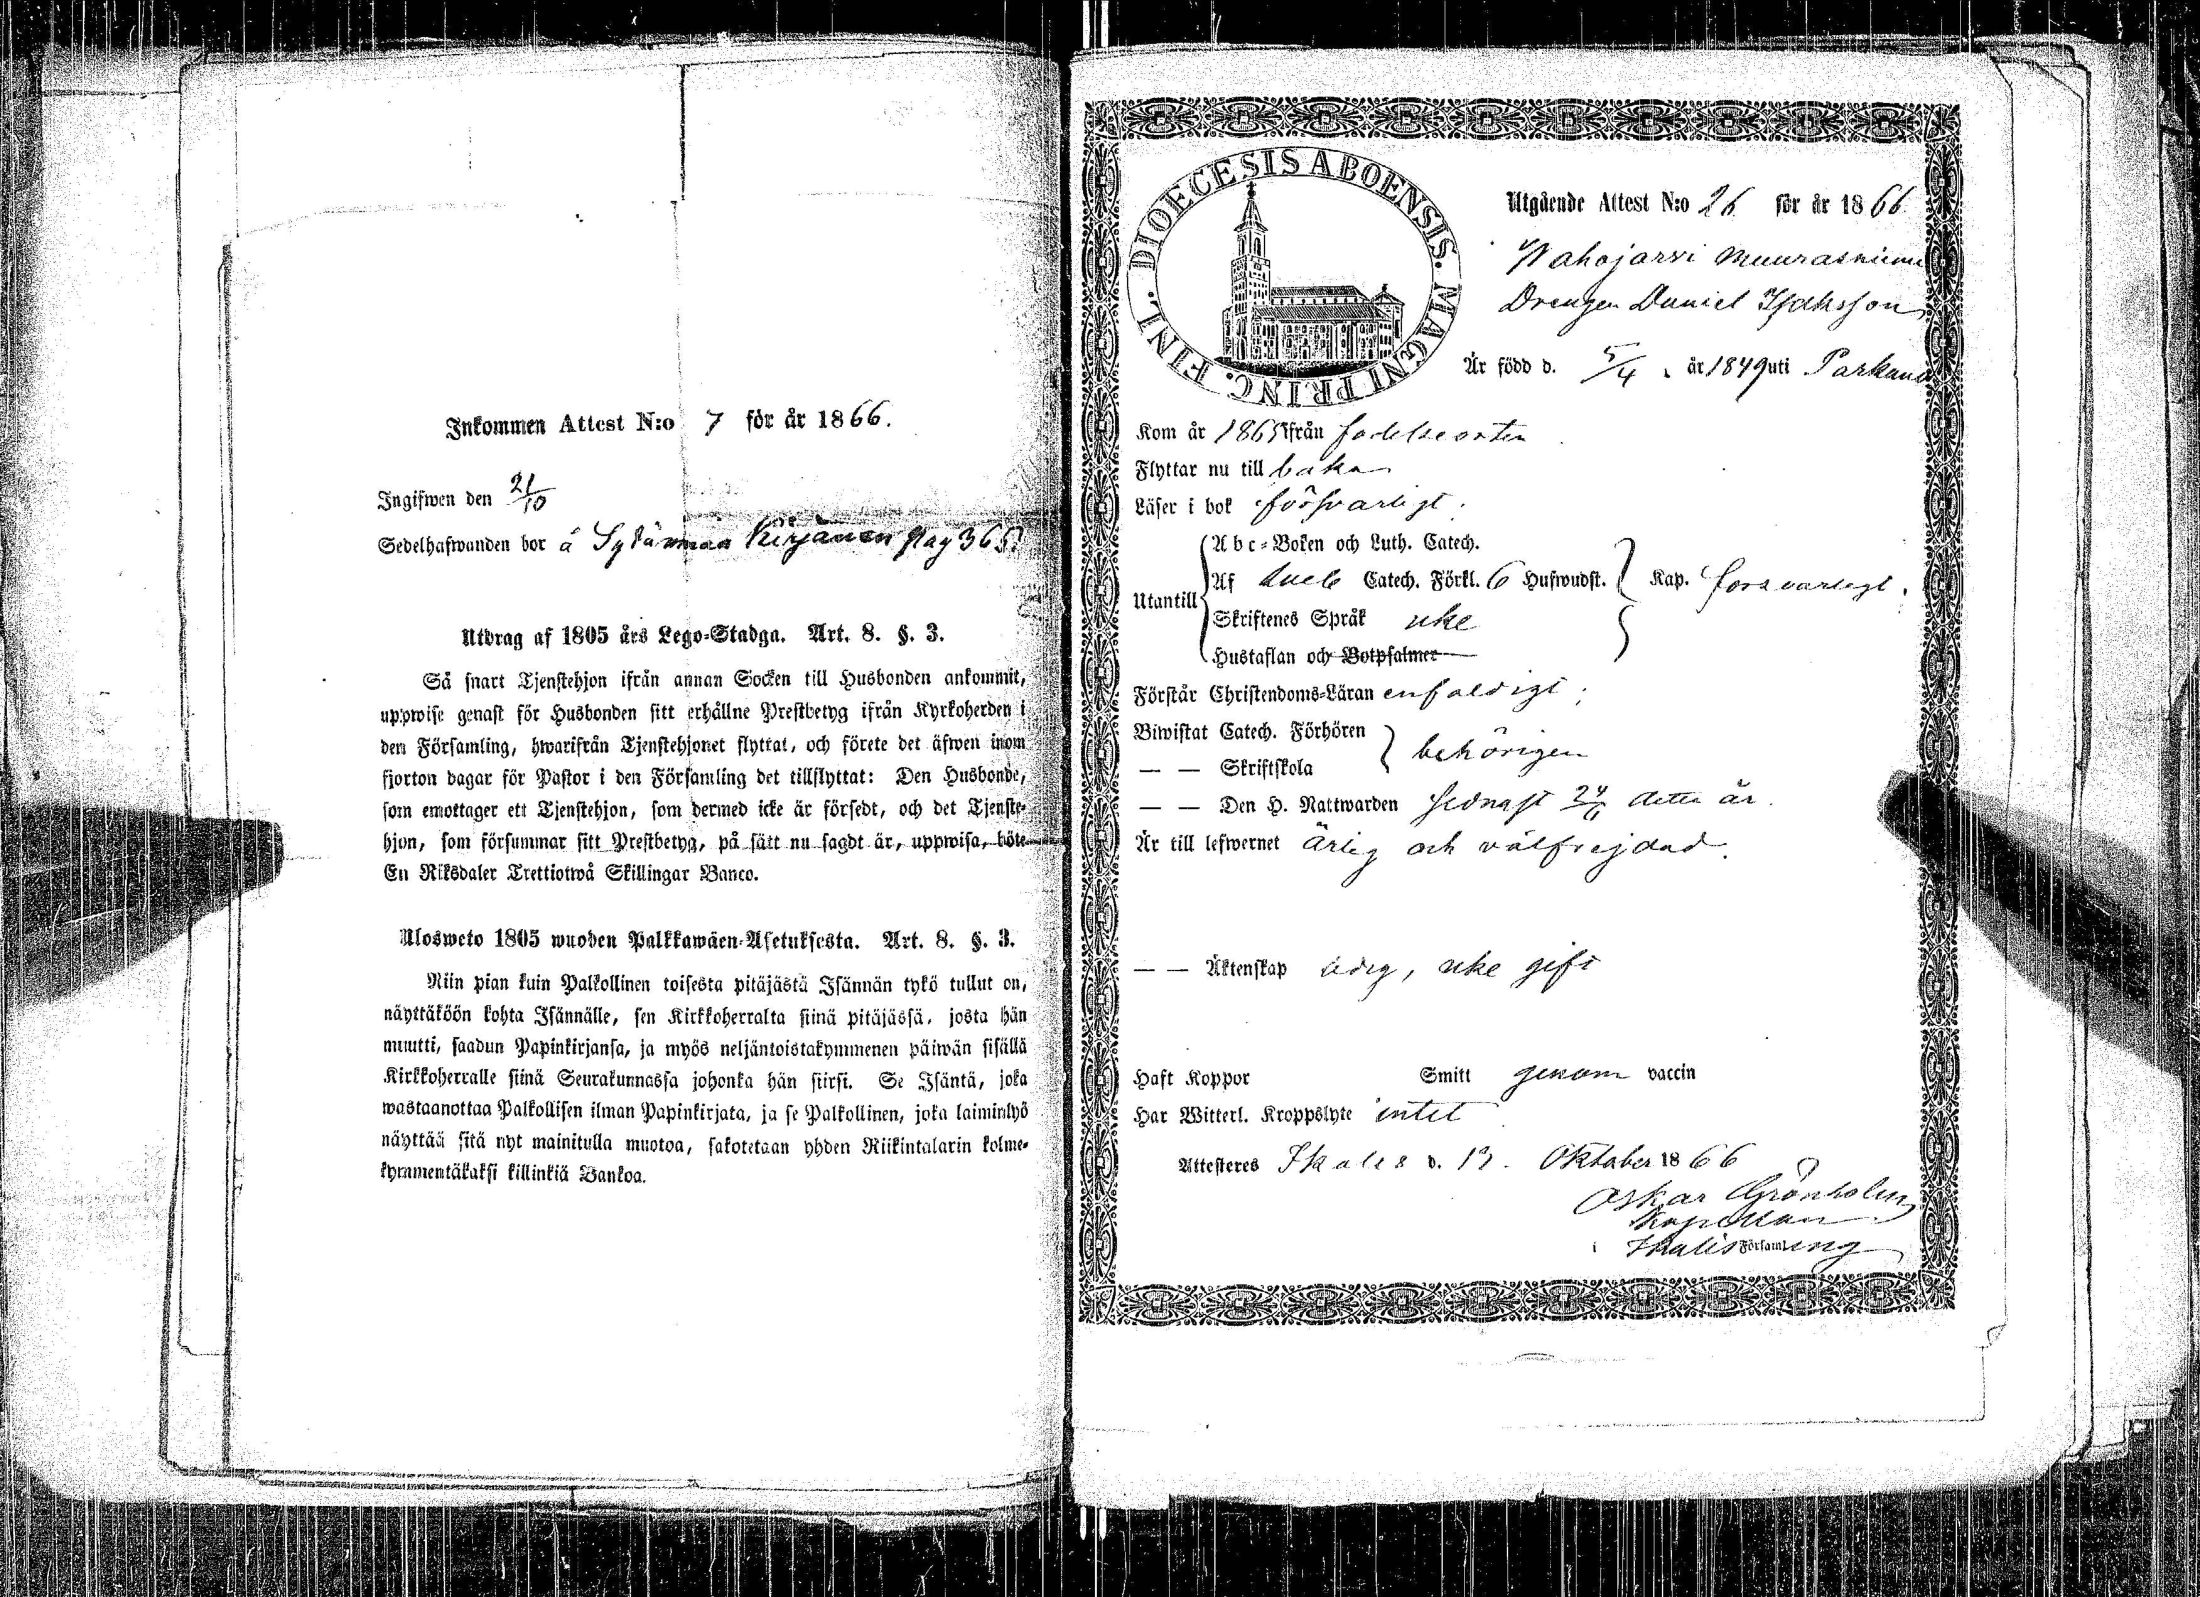 Inkommen Attest N:o 7 för år 1866.
Ingifwen den 21/10
Sedelhafwanden bor å Sydänmaa Kirjanen pag 365
Utdrag af 1805 års Lego-Stadga. Art. 8. §. 3.
Så snart Tjenstehjon ifrån annan Socken till Husbonden ankommit,
uppwise genast för Husbonden sitt erhållne Prestbetyg ifrån Kyrkoherden i
den Församling, hwarifrån Tjenstehjonet flyttat, och förete det äfwen inom
fjorton dagar för Pastor i den Församling det tillflyttat: Den Husbonde,
som emottager ett Tjenstehjon, som dermed icke är försedt, och det Tjenste-
hjon, som försummar sitt Prestbetyg, på sätt nu sagdt är, uppwisa, böte
En Riksdaler Trettiotwå Skillingar Banco.
Ulosweto 1805 wuoden Palkkawäen-Asetuksesta. Art. 8. §. 3.
Niin pian kuin Palkollinen toisesta pitäjästä Isännän tykö tullut on,
näyttäköön kohta Isännälle, sen Kirkkoherralta siinä pitäjässä, josta hän
muutti, saadun Papinkirjansa, ja myös neljäntoistakymmenen päiwän sisällä
Kirkkoherralle siinä Seurakunnassa johonka hän siirsi. Se Isäntä, joka
wastaanottaa Palkollisen ilman Papinkirjata, ja se Palkollinen, joka laiminlyö
näyttää sitä nyt mainitulla muotoa, sakotetaan yhden Riikintalarin kolme-
kymmentäkaksi killinkiä Bankoa.
DIOECESIS ABOENSIS. MAGNI PRINC. FINL.
Utgående Attest N:o 26 för år 1866
Wahojärvi Muurasniemi
Drengen Daniel Isaksson
Är född d. 5/4 år 1849 uti Parkano
Kom år 1865 ifrån födelseorten
Flyttar nu till baka
Läser i bok försvarligt.
Abc-Boken och Luth. Catech.
Utantill Af Catech. Förkl. 6 Hufwudst. Kap. försvarligt.
Skriftenes Språk icke
Hustaflan och Botpsalmer
Förstår Christendoms-Läran enfaldigt;
Biwistat Catech. Förhören behörigen
— — Skriftskola
— — Den H. Nattwarden sednast 24/6 detta år.
Är till lefwernet ärlig och välfrejdad.
— — Äktenskap ledig, icke gift
Haft Koppor Smitt genom vaccin
Har Witterl. Kroppslyte intet
Attesteres Ikalis d. 13. Oktober 1866
Oskar Grönholm
Kapellan
i Ikalis Församling